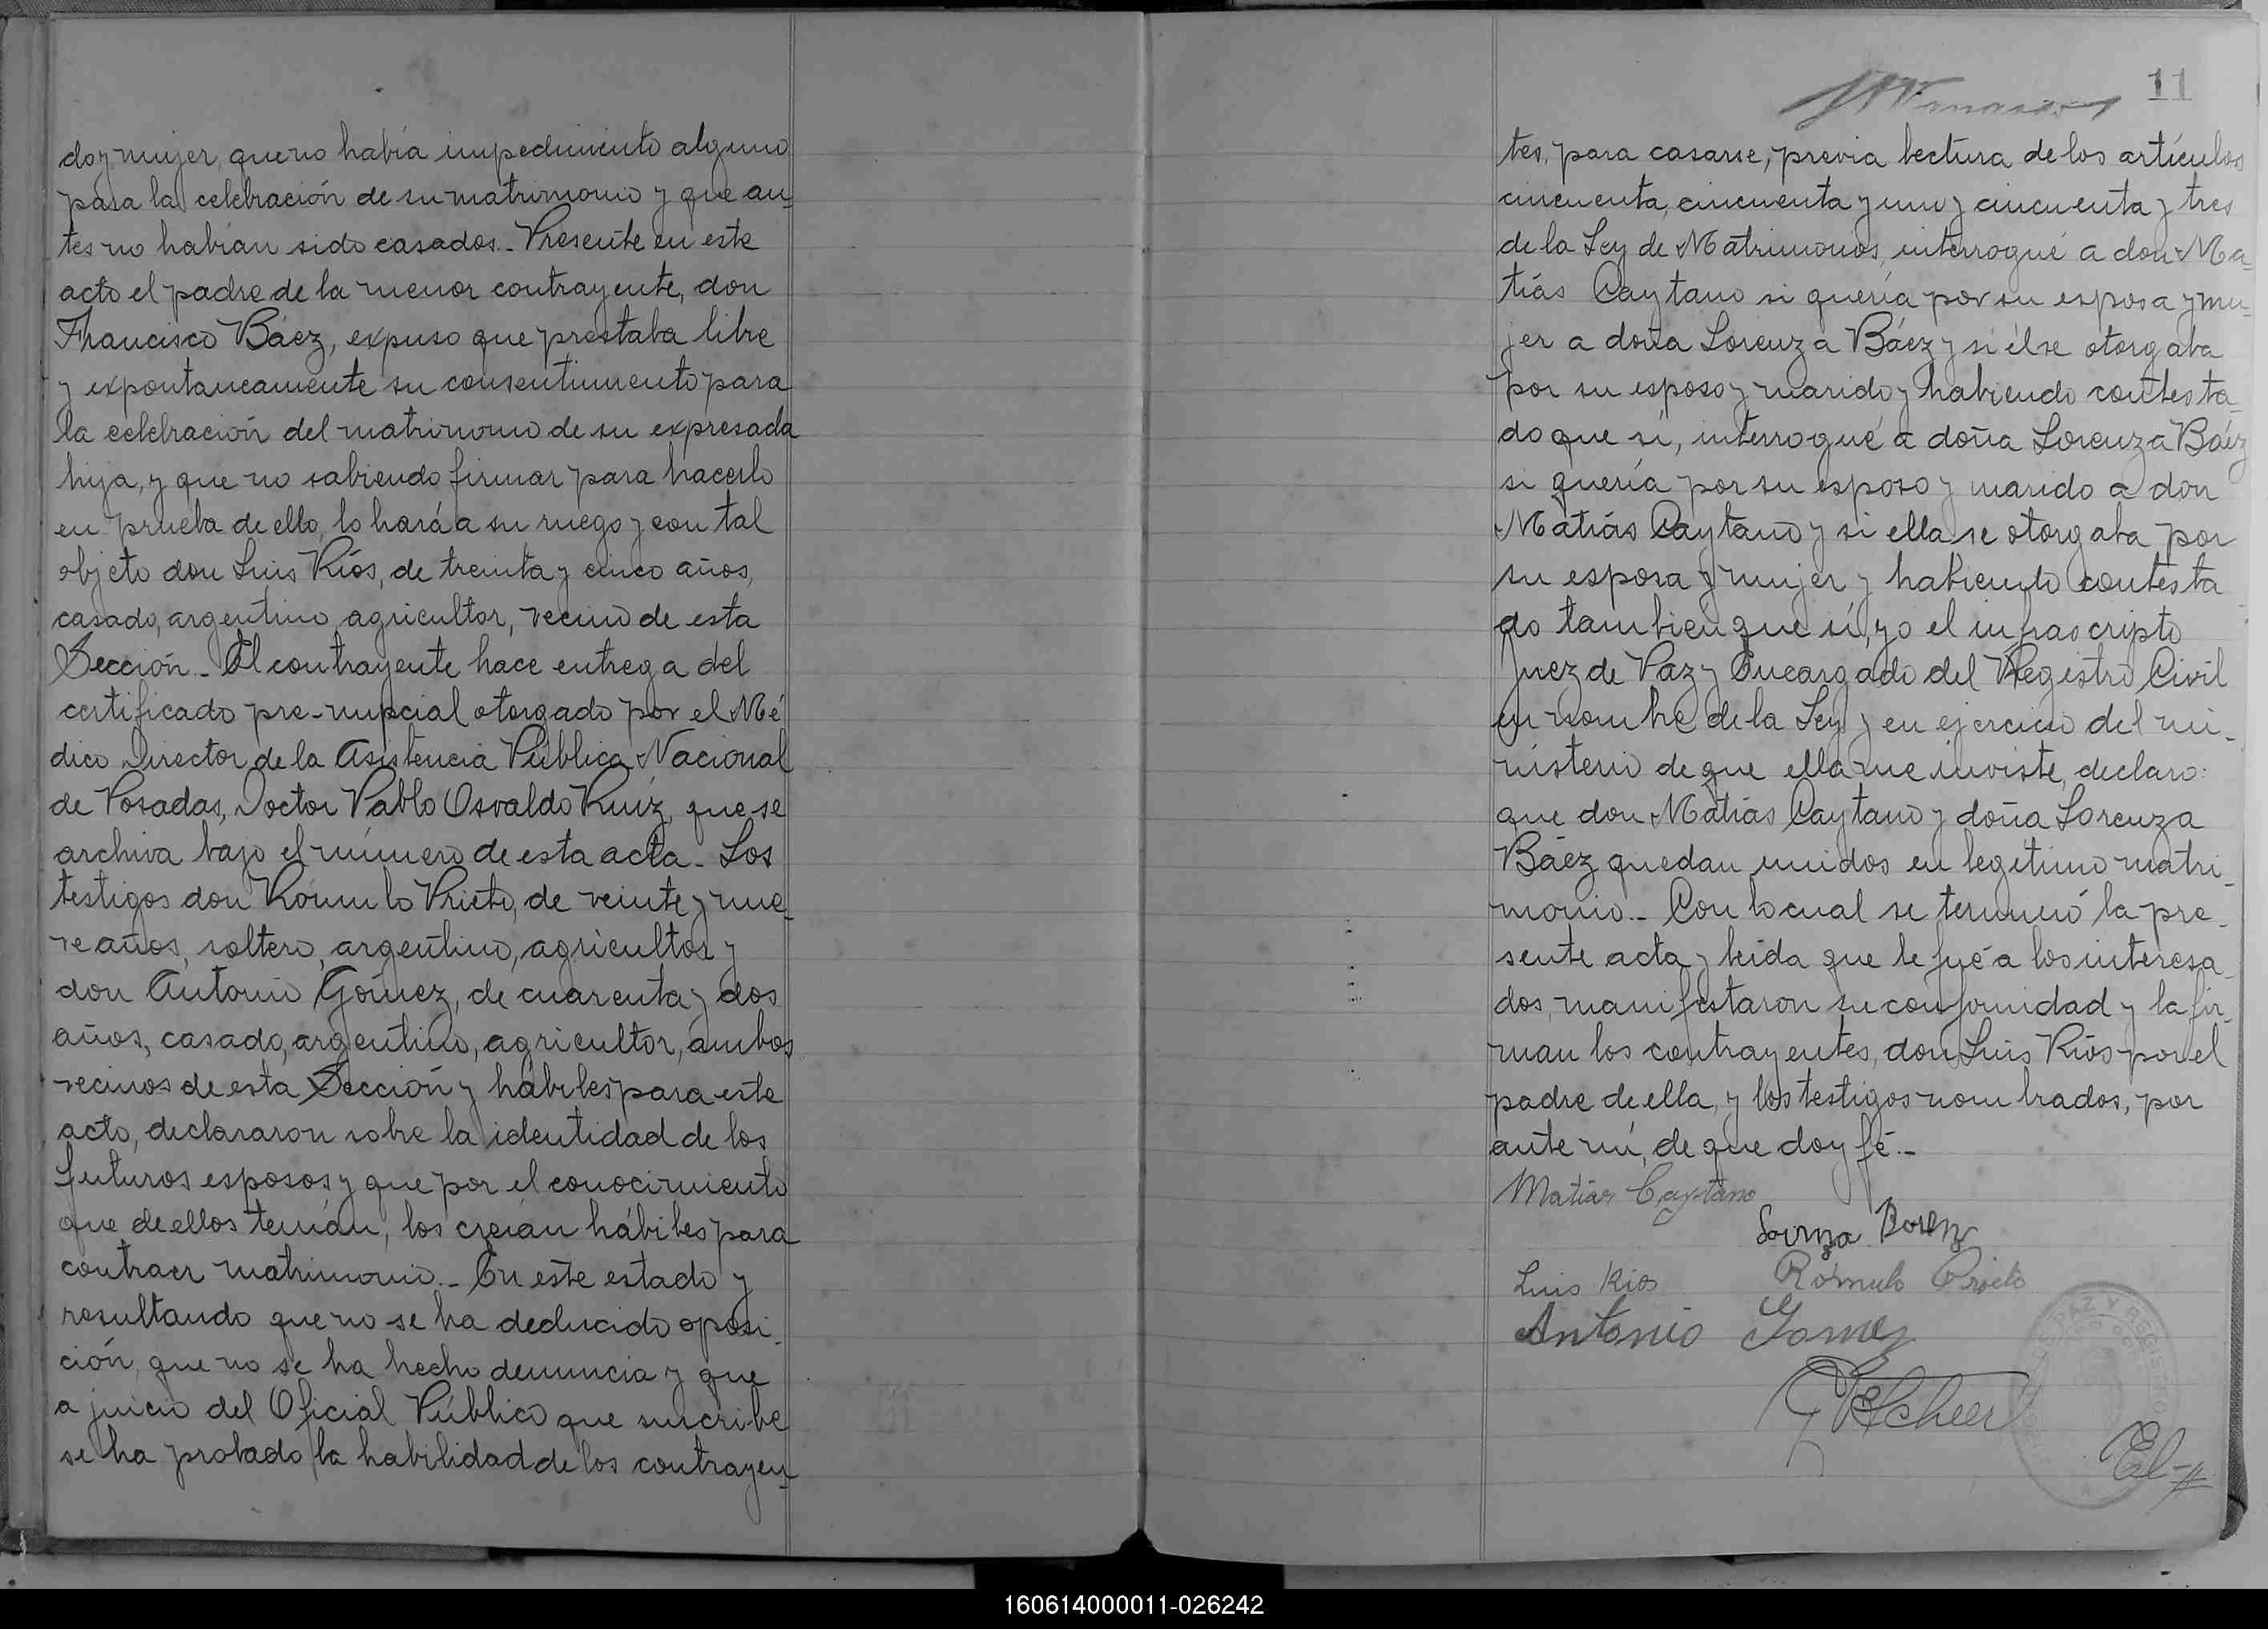 do y mujer, que no había impedimento alguno
para la celebración de su matrimonio y que an-
tes no habían sido casados.- Presente en este
acto el padre de la menor contrayente, don
Francisco Báez, expuso que prestaba libre
y expontaneamente su consentimiento para
la celebración del matrimonio de su expresada
hija, y que no sabiendo firmar para hacerlo
en prueba de ello, lo hará a su ruego y con tal
objeto don Luis Ríos, de treinta y cinco años,
casado, argentino, agricultor, vecino de esta
Sección.- El contrayente hace entrega del
certificado pre-nupcial otorgado por el Mé
dico Director de la Asistencia Pública Nacional
de Posadas, Doctor Pablo Osvaldo Ruíz, que se
archiva bajo el número de esta acta.- Los
testigos don Rómulo Prieto, de veinte y nue-
ve años, soltero, argentino, agricultor y
don Antonio Gómez, de cuarenta y dos
años, casado, argentino, agricultor, ambos
vecinos de esta Sección y hábiles para este
acto, declararon sobre la identidad de los
futuros esposos y que por el conocimiento
que de ellos tenían, los creían hábiles para
contraer matrimonio.- En este estado y
resultando que no se ha deducido oposi-
ción, que no se ha hecho denuncia y que
a juicio del Oficial Público que suscribe
se ha probado la habilidad de los contrayen-
11
tes, para casarse, previa lectura de los artículos
cincuenta, cincuenta y uno y cincuenta y tres
de la Ley de Matrimonios, interrogué a don Ma-
tiás Caytano si quería por su esposa y mu-
jer a doña Lorenza Báez y si él se otorgaba
por su esposo y marido y habiendo contesta-
do que sí, interrogué a doña Lorenza Báez
si quería por su esposo y marido a don
Matiás Caytano y si ella se otorgaba por
su esposa y mujer y habiendo contesta
do también que sí, yo el infrascripto
Juez de Paz y Encargado del Registro Civil
en nombre de la Ley y en ejercicio del mi-
nisterio de que ella me inviste, declaro:
que don Matiás Caytano y doña Lorenza
Báez quedan unidos en legítimo matri-
monio.- Con lo cual se terminó la pre-
sente acta y leída que le fué a los interesa-
dos, manifestaron su conformidad y la fir-
man los contrayentes, don Luis Ríos por el
padre de ella, y los testigos nombrados, por
ante mí, de que doy fé.-
Matias Caytano
Luis Rios
Rómulo Prieto
Antonio Gomez
El-//
PAZ Y REGISTRO
160614000011-026242